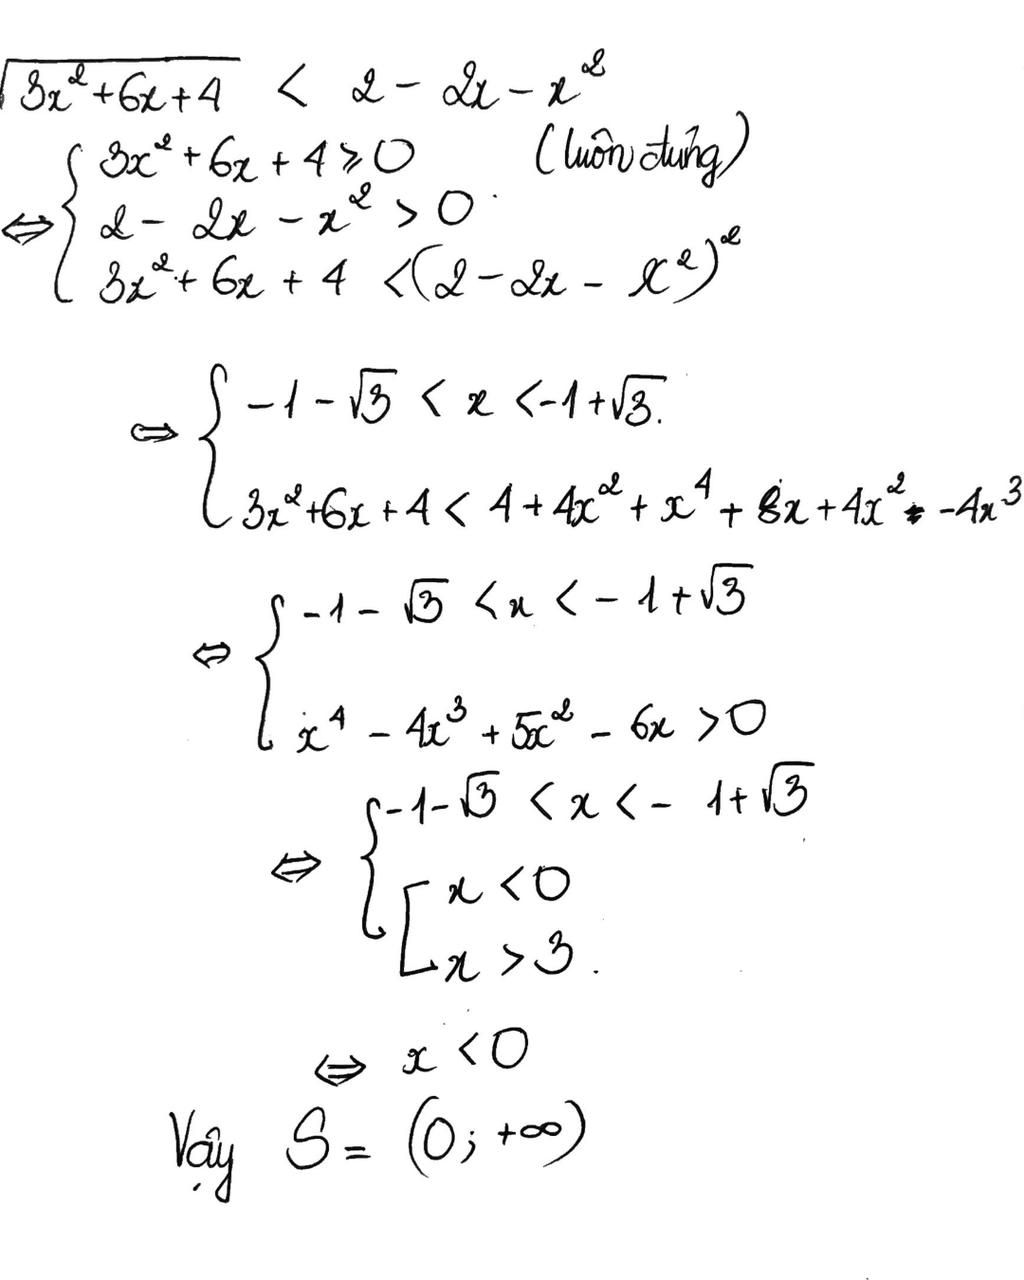 √(3x² + 6x + 4) < 2 - 2x - x²
⇔ { 3x² + 6x + 4 ⩾ 0 (luôn đúng)
2 - 2x - x² > 0
3x² + 6x + 4 < (2 - 2x - x²)²
⇔ { -1 - √3 < x < -1 + √3.
3x² + 6x + 4 < 4 + 4x² + x⁴ + 8x + 4x² - 4x³
⇔ { -1 - √3 < x < -1 + √3
x⁴ - 4x³ + 5x² - 6x > 0
⇔ { -1 - √3 < x < - 1 + √3
[ x < 0
x > 3.
⇔ x < 0
Vậy S = (0; +∞)